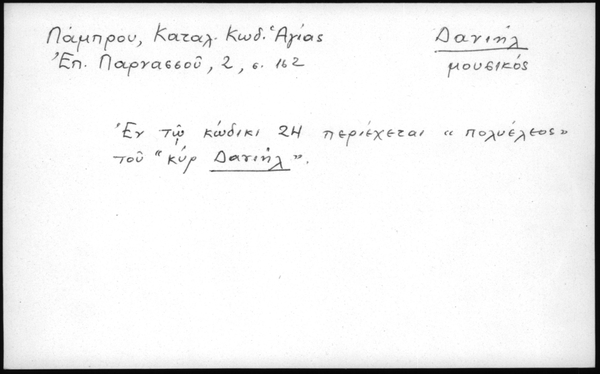 Λάμπρου, Καταλ. Κωδ. Ἁγίας
Ἐπ. Παρνασσοῦ, 2, σ. 162
Δανιήλ
μουσικός
Ἐν τῷ κώδικι 24 περιέχεται « πολυέλεος »
τοῦ “κύρ Δανιήλ”.